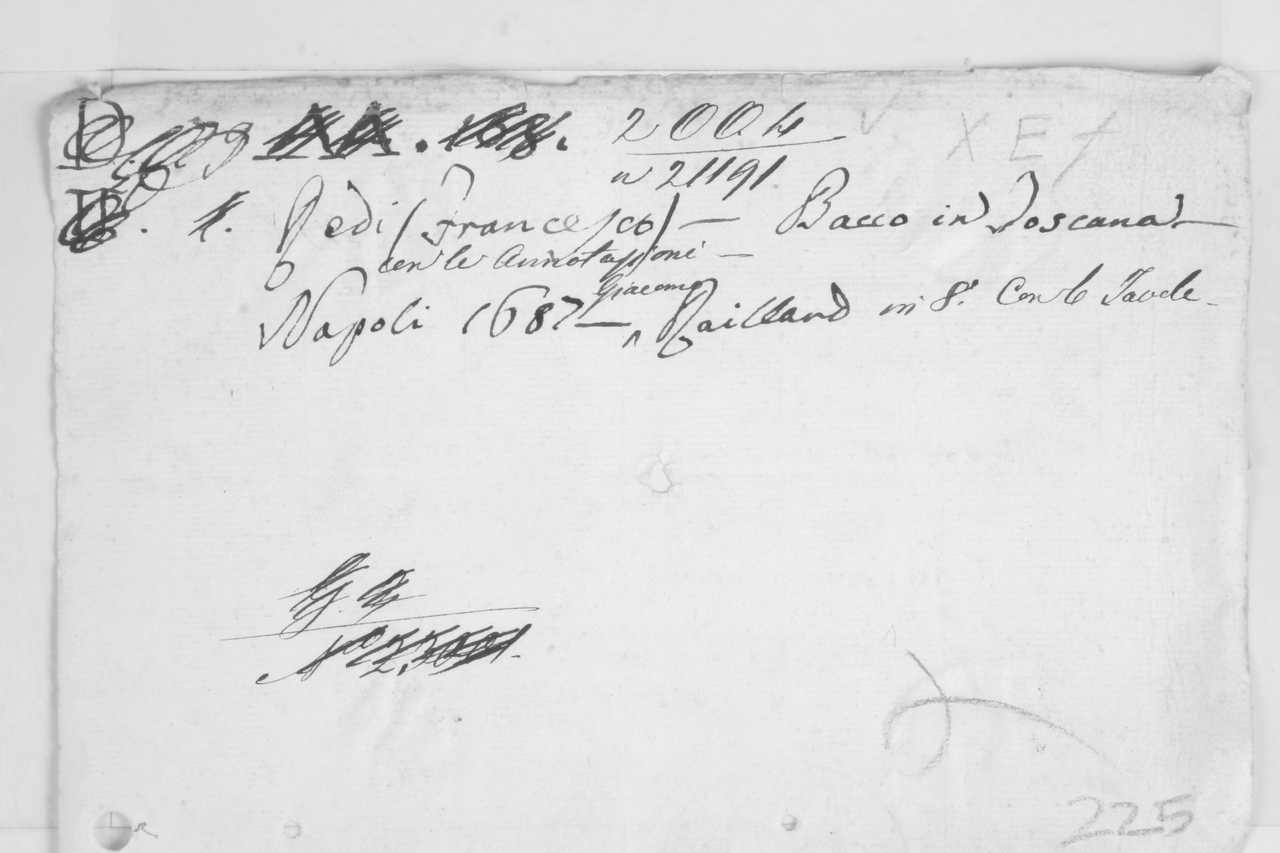 2004
n 21191
X E
1. Redi (Francesco) — Bacco in Toscana —
con le Annotazioni —
Giacomo
Napoli 1687 — ^ Raillard in 8.° Con le Tavole -
225